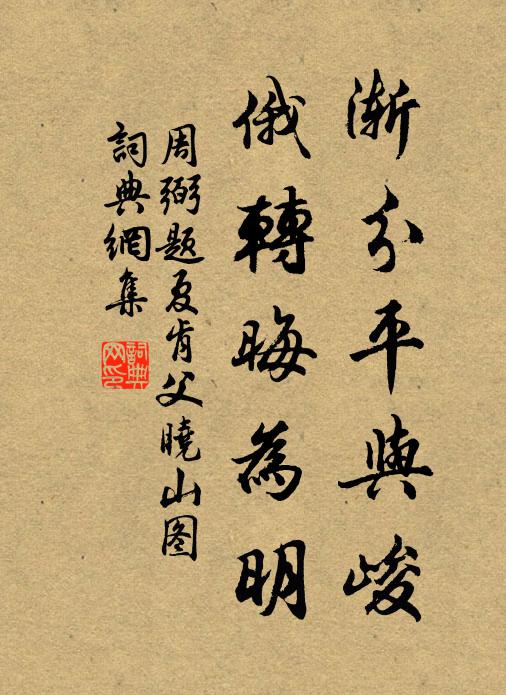 漸分平與峻
俄轉晦為明
周弼题夏肯父曉山图
詞典網集
詞典网印